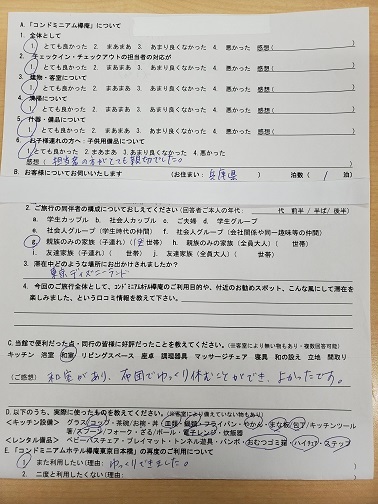 A.「コンドミニアム欅庵」について
1. 全体として
1. とても良かった 2. まあまあ 3. あまり良くなかった 4. 悪かった 感想( )
2. チェックイン・チェックアウトの担当者の対応が
1. とても良かった 2. まあまあ 3. あまり良くなかった 4. 悪かった 感想( )
3. 建物・客室について
1. とても良かった 2. まあまあ 3. あまり良くなかった 4. 悪かった 感想( )
4. 清掃について
1. とても良かった 2. まあまあ 3. あまり良くなかった 4. 悪かった 感想( )
5. 什器・備品について
1. とても良かった 2. まあまあ 3. あまり良くなかった 4. 悪かった 感想( )
6. お子様連れの方へ・子供用備品について
1. とても良かった 2. まあまあ 3. あまり良くなかった 4. 悪かった
感想( 担当者の方がとても親切でした。 )
B. お客様についてお伺いいたします (お住まい: 兵庫県 ) 泊数( 1 泊)
2. ご旅行の同伴者の構成についておしえてください(回答者ご本人の年代: 代 前半 / 半ば / 後半)
a. 学生カップル b. 社会人カップル c. ご夫婦 d. 学生グループ
e. 社会人グループ(学生時代の仲間) f. 社会人グループ(会社関係や同一趣味等の仲間)
g. 親族のみの家族(子連れ)( 世帯) h. 親族のみの家族(全員大人)( 世帯)
i. 友達家族(子連れ)( 世帯) j. 友達家族(全員大人)( 世帯)
3. 滞在中どのような場所にお出かけされましたか?
東京ディズニーランド
4. 今回のご旅行全体として、コンドミニアムホテル欅庵のご利用目的や、付近のお勧めスポット、こんな風にして滞在を
楽しみました、という口コミ情報を教えて下さい。
C. 当館で便利だった点・同行の皆様に好評だったことを教えてください。(※客室により無い物もあり・複数回答可能)
キッチン 浴室 和室 リビングスペース 座卓 調理器具 マッサージチェア 寝具 和の設え 立地 間取り
(ご感想) 和室があり、布団でゆっくり休むことができ、よかったです。
D. 以下のうち、実際に使ったものを教えてください。(※客室により備えていない物もあり)
<キッチン設備> グラス/コップ・茶碗/お椀・丼・皿類・鍋類・フライパン・やかん・まな板・包丁・キッチンツール
箸/スプーン/フォーク・ざる/ボール・電子レンジ・炊飯器
<レンタル備品> ベビーバスチェア・プレイマット・トンネル遊具・バンボ・おむつゴミ箱・ハイチェア・ステップ
E.「コンドミニアムホテル欅庵東京日本橋」の再度のご利用について
1. また利用したい(理由: ゆっくりできました。 )
2. 二度と利用したくない(理由: )